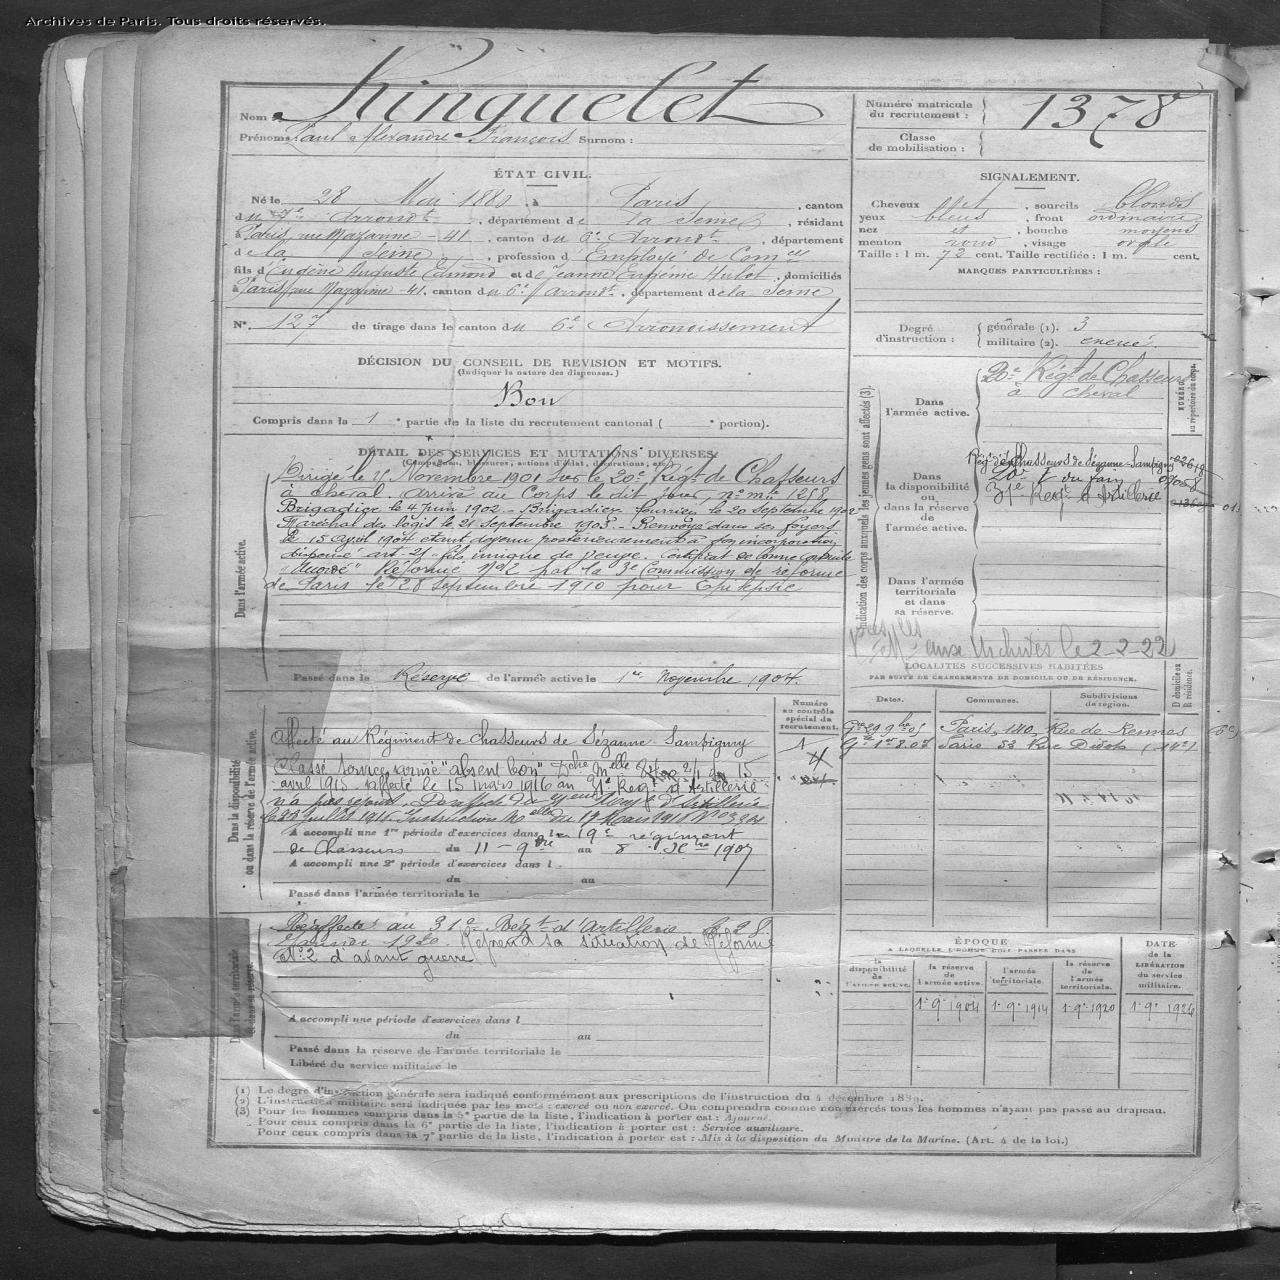 Archives de Paris. Tous droits réservés.
Nom Kinguelet
Prénoms Paul Alexandre François Surnom :
Numéro matricule du recrutement : 1378
Classe de mobilisation :
ÉTAT CIVIL.
Né le 28 Mai 1880, à Paris, canton
du 7e Arrondt, département de la Seine, résidant
à Paris, rue Mazarine - 41, canton du 6e Arrondt, département
de la Seine, profession d'Employé de Comce
fils d'Eugène Auguste Edmond et de Jeanne Eugénie Hulot, domiciliés
à Paris, rue Mazarine - 41, canton du 6e Arrondt, département de la Seine
N°. 127 de tirage dans le canton du 6e Arrondissement
SIGNALEMENT.
Cheveux et, sourcils blonds
yeux bleus, front ordinaire
nez et, bouche moyens
menton rond, visage ovale
Taille : 1 m. 72 cent. Taille rectifiée : 1 m. cent.
MARQUES PARTICULIÈRES :
Degré d'instruction : générale (1). 3
militaire (2). exercé
DÉCISION DU CONSEIL DE REVISION ET MOTIFS.
(Indiquer la nature des dispenses.)
Bon
Compris dans la 1e partie de la liste du recrutement cantonal ( e portion).
DÉTAIL DES SERVICES ET MUTATIONS DIVERSES.
(Campagnes, blessures, actions d'éclat, décorations, etc.)
Dans l'armée active.
Dirigé le Novembre 1901 sur le 20e Régt de Chasseurs
à cheval. Arrivé au Corps le dit jour, no mle 1258
Brigadier le 4 juin 1902 - Brigadier fourrier le 20 septembre 1902
Maréchal des logis le 21 septembre 1903 - Renvoyé dans ses foyers
le 15 avril 1904 étant devenu postérieurement à son incorporation
dispensé art. 21 - fils unique de veuve. Certificat de bonne conduite
"Accordé" Réformé No 2 par la 3e Commission de réforme
de Paris le 28 septembre 1910 pour Épilepsie
Passé dans la Réserve de l'armée active le 1er Novembre 1904.
Indication des corps auxquels les jeunes gens sont affectés (3).
NUMÉRO au répertoire du corps.
Dans l'armée active.
20e Régt de Chasseurs
à cheval
Dans la disponibilité ou dans la réserve de l'armée active.
Régt de Chasseurs de Sézanne-Sampigny
31e Régt d'Artillerie
Dans l'armée territoriale et dans sa réserve.
aux Archives le 2-2-22
LOCALITÉS SUCCESSIVES HABITÉES
PAR SUITE DE CHANGEMENTS DE DOMICILE OU DE RÉSIDENCE.
Dates. Communes. Subdivisions de région. D domicile ou R résidence.
29 9bre 05 Paris, 140 Rue de Rennes
Paris 53 Rue Didot (14e)
Dans la disponibilité ou dans la réserve de l'armée active.
Numéro au contrôle spécial du recrutement.
Affecté au Régiment de Chasseurs de Sézanne-Sampigny
Classé service armé "absent bon" du 15
avril 1915 affecté le 15 mars 1916 au Régt d'Artillerie
n'a pas rejoint.
Instruction Melle du 19 Mars 1918
A accompli une 1re période d'exercices dans le 19e régiment
de Chasseurs du 11 - 9bre au 8 Xbre 1907
A accompli une 2e période d'exercices dans l
du au
Passé dans l'armée territoriale le
Réaffecté au 31e Régt d'Artillerie le 28
1920. Reprend sa situation de Réformé
No 2 d'avant guerre
A accompli une période d'exercices dans l
du au
Passé dans la réserve de l'armée territoriale le
Libéré du service militaire le
ÉPOQUE
A LAQUELLE L'HOMME DOIT PASSER DANS
la disponibilité de l'armée active. la réserve de l'armée active. l'armée territoriale. la réserve de l'armée territoriale.
DATE de la LIBÉRATION du service militaire.
1e 9e 1904 1e 9e 1914 1e 9e 1920 1e 9e 1926
(1) Le degré d'instruction générale sera indiqué conformément aux prescriptions de l'instruction du 4 décembre 1889.
(2) L'instruction militaire sera indiquée par les mots : exercé ou non exercé. On comprendra comme non exercés tous les hommes n'ayant pas passé au drapeau.
(3) Pour les hommes compris dans la 5e partie de la liste, l'indication à porter est : Ajourné.
Pour ceux compris dans la 6e partie de la liste, l'indication à porter est : Service auxiliaire.
Pour ceux compris dans la 7e partie de la liste, l'indication à porter est : Mis à la disposition du Ministre de la Marine. (Art. 4 de la loi.)